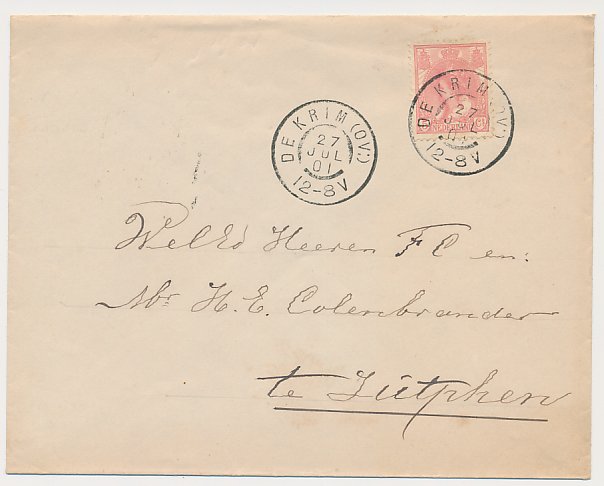 DE KRIM (OV.)
27
JUL
01
12-8V
DE KRIM (OV.)
27
JUL
01
12-8V
NEDERLAND
WelEd Heeren F C en:
Mr H. E. Colenbrander
te Zutphen